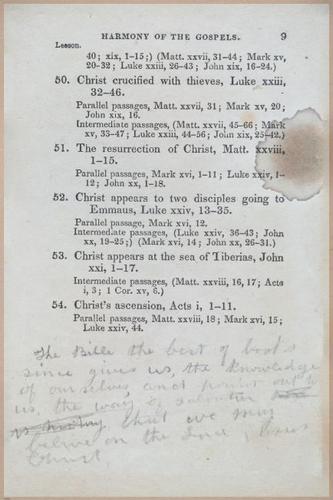 HARMONY OF THE GOSPELS. 9
Lesson.
40; xix, 1-15;) (Matt. xxvii, 31-44; Mark xv,
20-32; Luke xxiii, 26-43; John xix, 16-24.)
50. Christ crucified with thieves, Luke xxiii,
32-46.
Parallel passages, Matt. xxvii, 31; Mark xv, 20;
John xix, 16.
Intermediate passages, (Matt. xxvii, 45-66; Mark
xv, 33-47; Luke xxiii, 44-56; John xix, 25-42.)
51. The resurrection of Christ, Matt. xxviii,
1-15.
Parallel passages, Mark xvi, 1-11; Luke xxiv, 1-
12; John xx, 1-18.
52. Christ appears to two disciples going to
Emmaus, Luke xxiv, 13-35.
Parallel passage, Mark xvi, 12.
Intermediate passages, (Luke xxiv, 36-43; John
xx, 19-25;) (Mark xvi, 14; John xx, 26-31.)
53. Christ appears at the sea of Tiberias, John
xxi, 1-17.
Intermediate passages, (Matt. xxviii, 16, 17; Acts
i, 3; 1 Cor. xv, 6.)
54. Christ's ascension, Acts i, 1-11.
Parallel passages, Matt. xxviii, 18; Mark xvi, 15;
Luke xxiv, 44.
The Bible the best of books
since gives us, the knowledge
of ourselves and point out to
us, the way of
that we may
on the
Christ